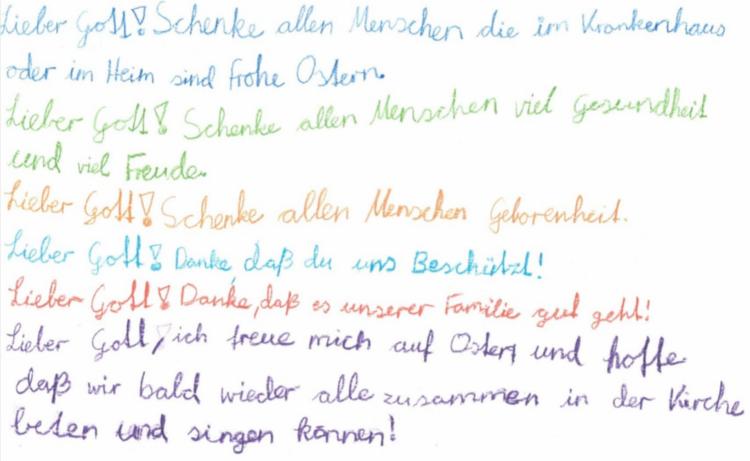 Lieber Gott! Schenke allen Menschen die im Krankenhaus
oder im Heim sind frohe Ostern.
Lieber Gott! Schenke allen Menschen viel Gesundheit
und viel Freude.
Lieber Gott! Schenke allen Menschen Geborenheit.
Lieber Gott! Danke, daß du uns Beschützt!
Lieber Gott! Danke, daß es unserer Familie gut geht!
Lieber Gott, ich freue mich auf Ostern und hoffe
daß wir bald wieder alle zusammen in der Kirche
beten und singen können!